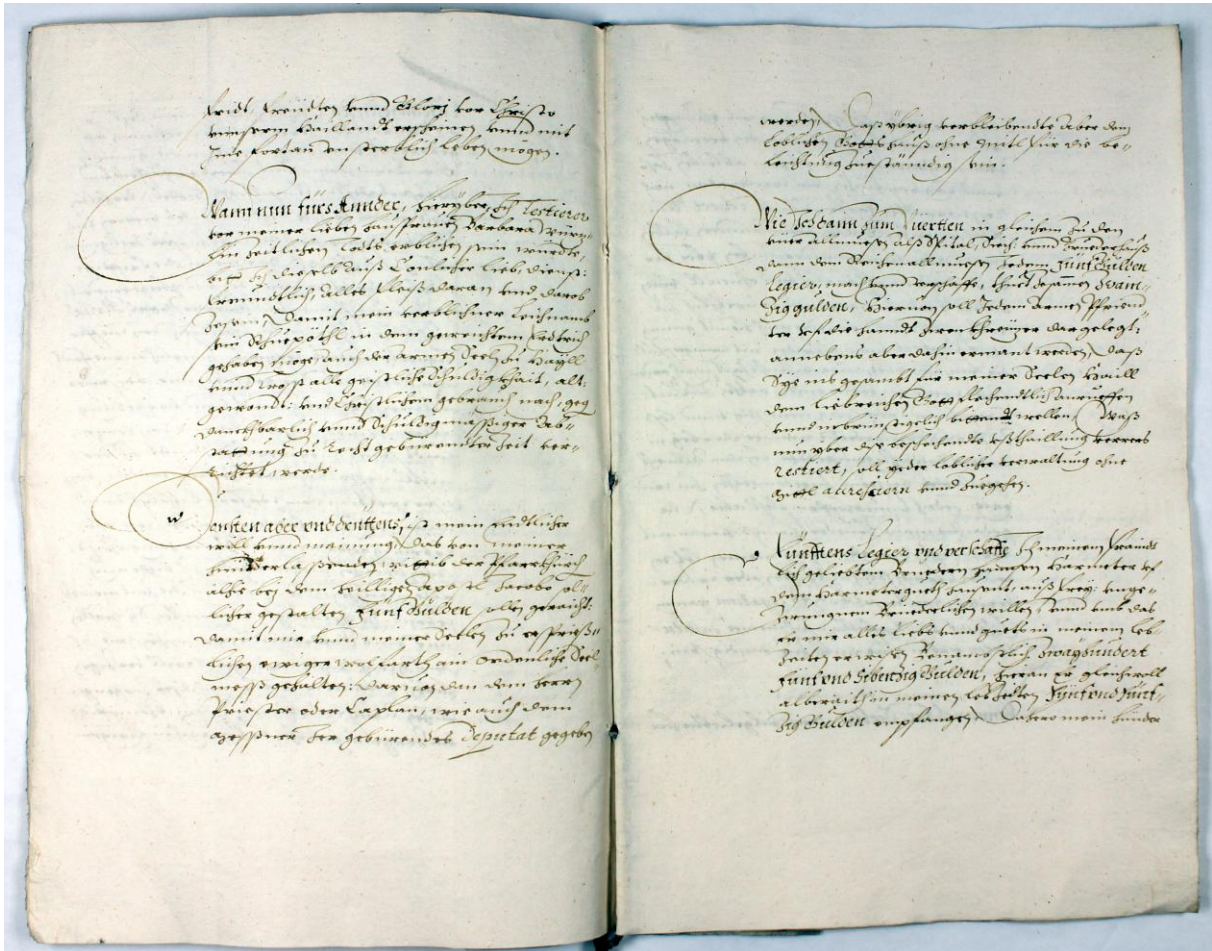 fridt, freüdten vnnd Glorj vor Christo
vnnserm Haillandt erscheinen, vnnd mit
Ime fortan vnsterblich leben mögen.
Wann nun fürs Annder, hierüber, Ich Testierer
vor meiner lieben haussfrauen Barbara
zeitlichen Todts verblichen sein wurdte,
bitt Ich dieselb auß Eelicher lieb, dienst:
freundtlich, alles fleiß daran vnd darob
zesein, damit mein verblichner Leichnamb
sein in dem geweichten Erdtrich
gehaben möge, auch der armen Seel zu Hayll
vnnd trost alle geistliche Schuldigkhait, alt:
gewondt: vnd Christlichem gebrauch nach, geg
danckhbarlich vnnd Schuldigmässiger Ab„
stattung zu recht gebürendter Zeit ver„
richtet werde.
Zum dritten, ist mein endtlicher
will vnnd mainung, das von meiner
hinderlassenden wittib der Pfarrkhürch
alhie bei dem heilligen Apostel Jacobo
licher gestalten Fünf Gülden sollen geraicht:
damit mir vnnd meiner Seelen zu ersprieß„
lichen ewiger wolfarth ain ordenliche Seel
mess gehalten: daruon dan dem herrn
Priester oder Caplan, wie auch dem
Messner der gebürendes Deputat gegeben
werden, daß ybrig verbleibendte aber dem
loblichen Gottshauß ohne mitl für die be„
leichtung zuestänndig sein.
Wie Ich dann zum Viertten in gleichem zu den
vier Allmuesen alß Spital, Siech: vnnd Bruederhauß
dann dem Reichenallmuesen Jedem Fünf Gülden
legier, mach vnnd verschaffe, thuet zesamen Zwain„
zig gülden, hieruon soll Jedem armen Pfrien„
ter vf die handt zwen khreuzer dargelegt:
annebens aber dahin ermant werden, daß
Sye ins gesambt für meiner Seelen haill
dem liebreichen Gott flechendtlich anrueffen
vnnd inbrünstigelich bitten wellen, Waß
nun yber die beschechendte Austhaillung verrers
restiert, soll yeder loblicher verwaltung ohne
mitl vnnd zuegehen.
Fünfftens Legier vnd verschaffe Ich meinem fraindt
lich geliebtem Bruedern Harmeter vf
dem Harmettergueth haussent, auß frey: vnge„
zwungnem Briederlichen willen, vnnd vmb das
er mir alles liebs vnnd guets in meinem leb
Zeiten erwisen Benanntlich Zwayhundert
Fünf vnd Sibenzig Gülden, hieran er gleichwoll
alberaith an meinen lebzeiten Fünf vnd fünf„
zig Gulden empfangen, Dahero mein hinder